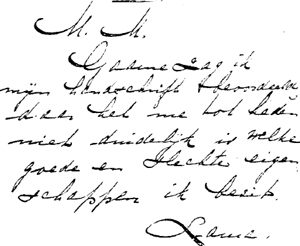 M. M.
Gaarne zag ik
mijn handschrift beoordeeld
daar het me tot heden
niet duidelijk is welke
goede en slechte eigen
schappen ik bezit.